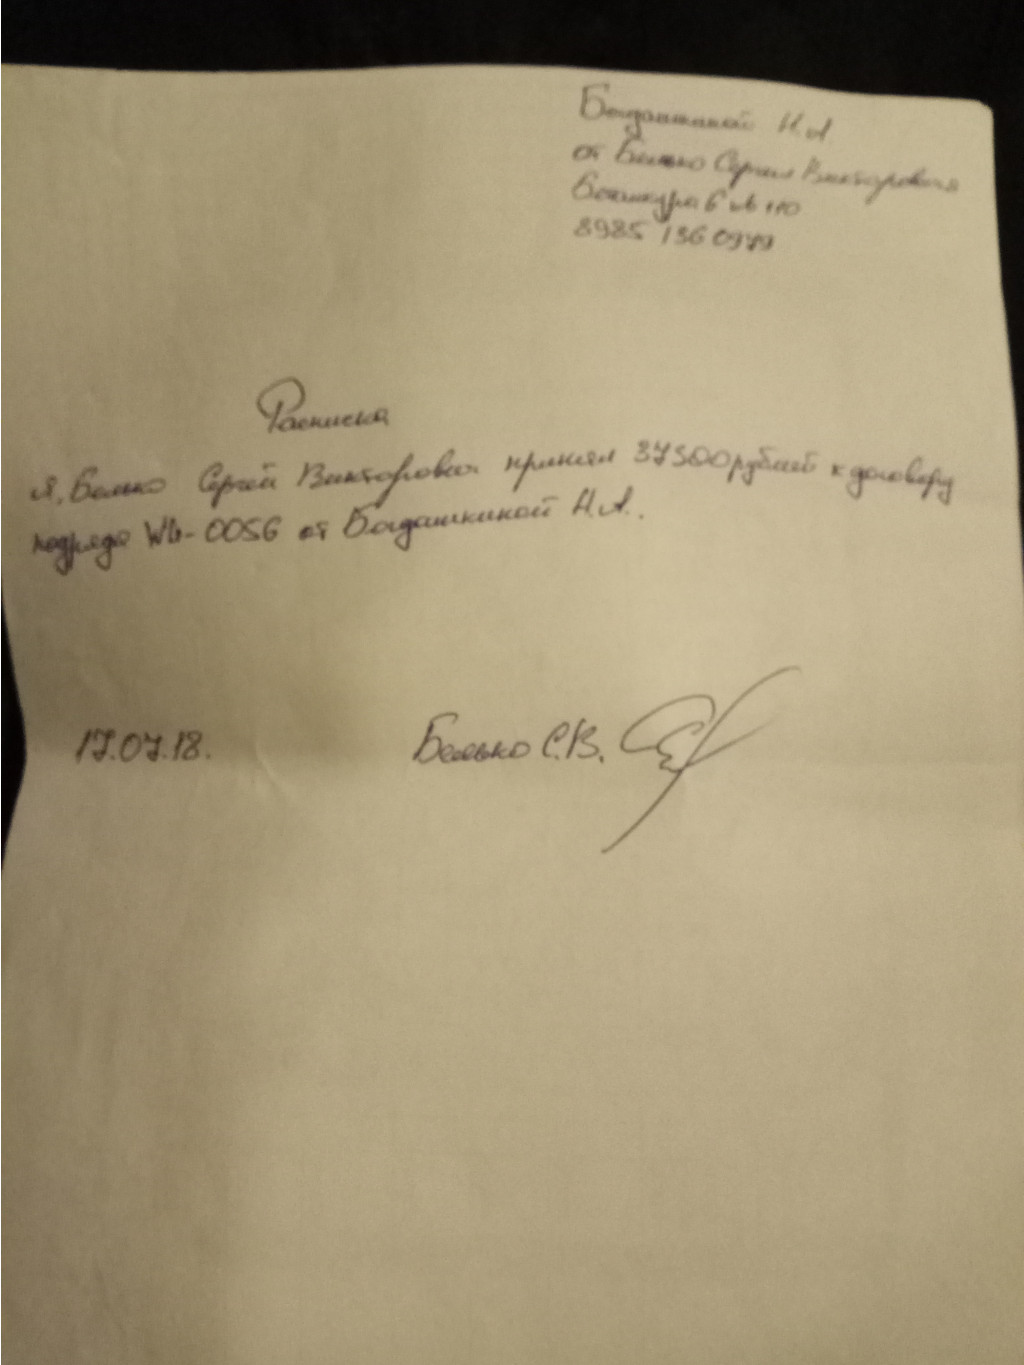 Богдашкиной Н.А.
от Белько Сергея Викторовича
6 110
8985 136 0979
Расписка
Я, Белько Сергей Викторович принял 37500 рублей к договору
подряда W6-0056 от Богдашкиной Н.А..
17.07.18.
Белько С.В.